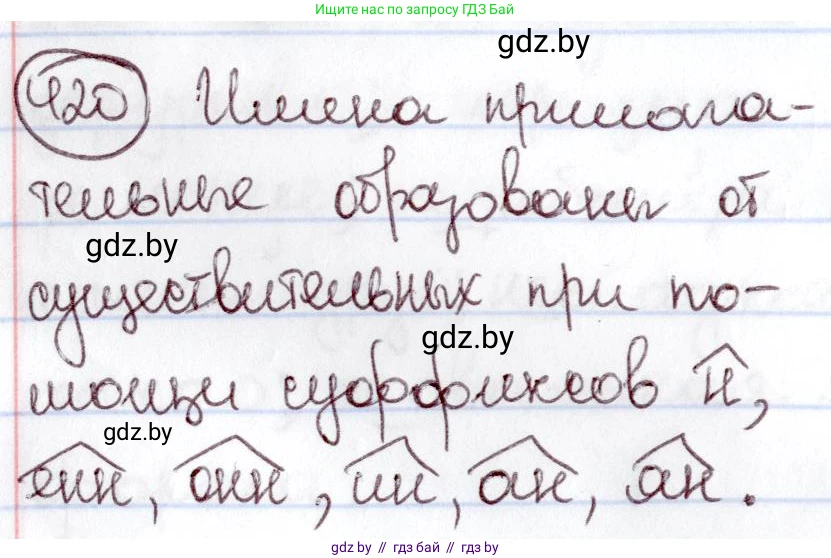 Ищите нас по запросу ГДЗ Бай
gdz.by
420 Имена прилага-
тельные образованы от
gdz.by
существительных при по-
gdz.by
мощи суффиксов н,
gdz.by
енн, онн, ин, ан, ян.
gdz.by // гдз бай // гдз by